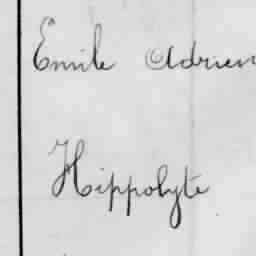 Emile Adrien
Hippolyte